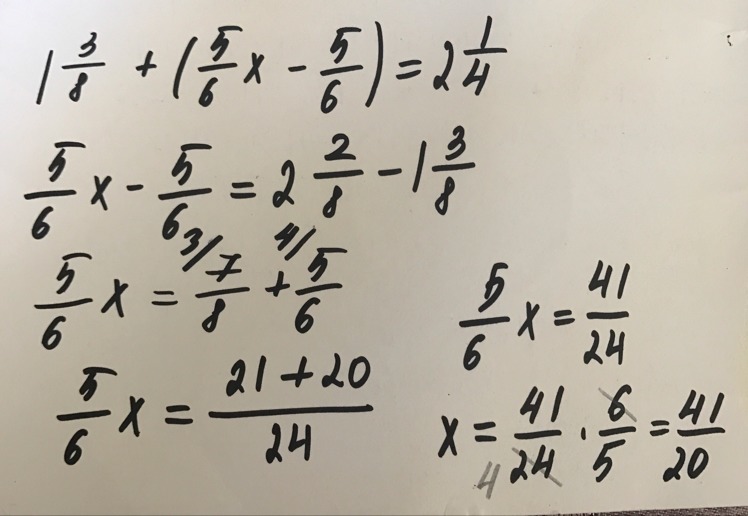 1 3/8 + (5/6 x - 5/6) = 2 1/4
5/6 x - 5/6 = 2 2/8 - 1 3/8
5/6 x = 3/ 7/8 + 4/ 5/6
5/6 x = (21 + 20)/24
5/6 x = 41/24
x = 41/24 4 · 6/5 = 41/20